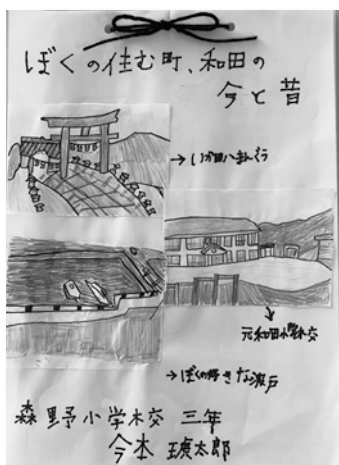 ぼくの住む町、和田の
今と昔
→ 八まんぐう
元和田小学校
→ ぼくの好きな瀬戸
森野小学校 三年
今本 琥太郎